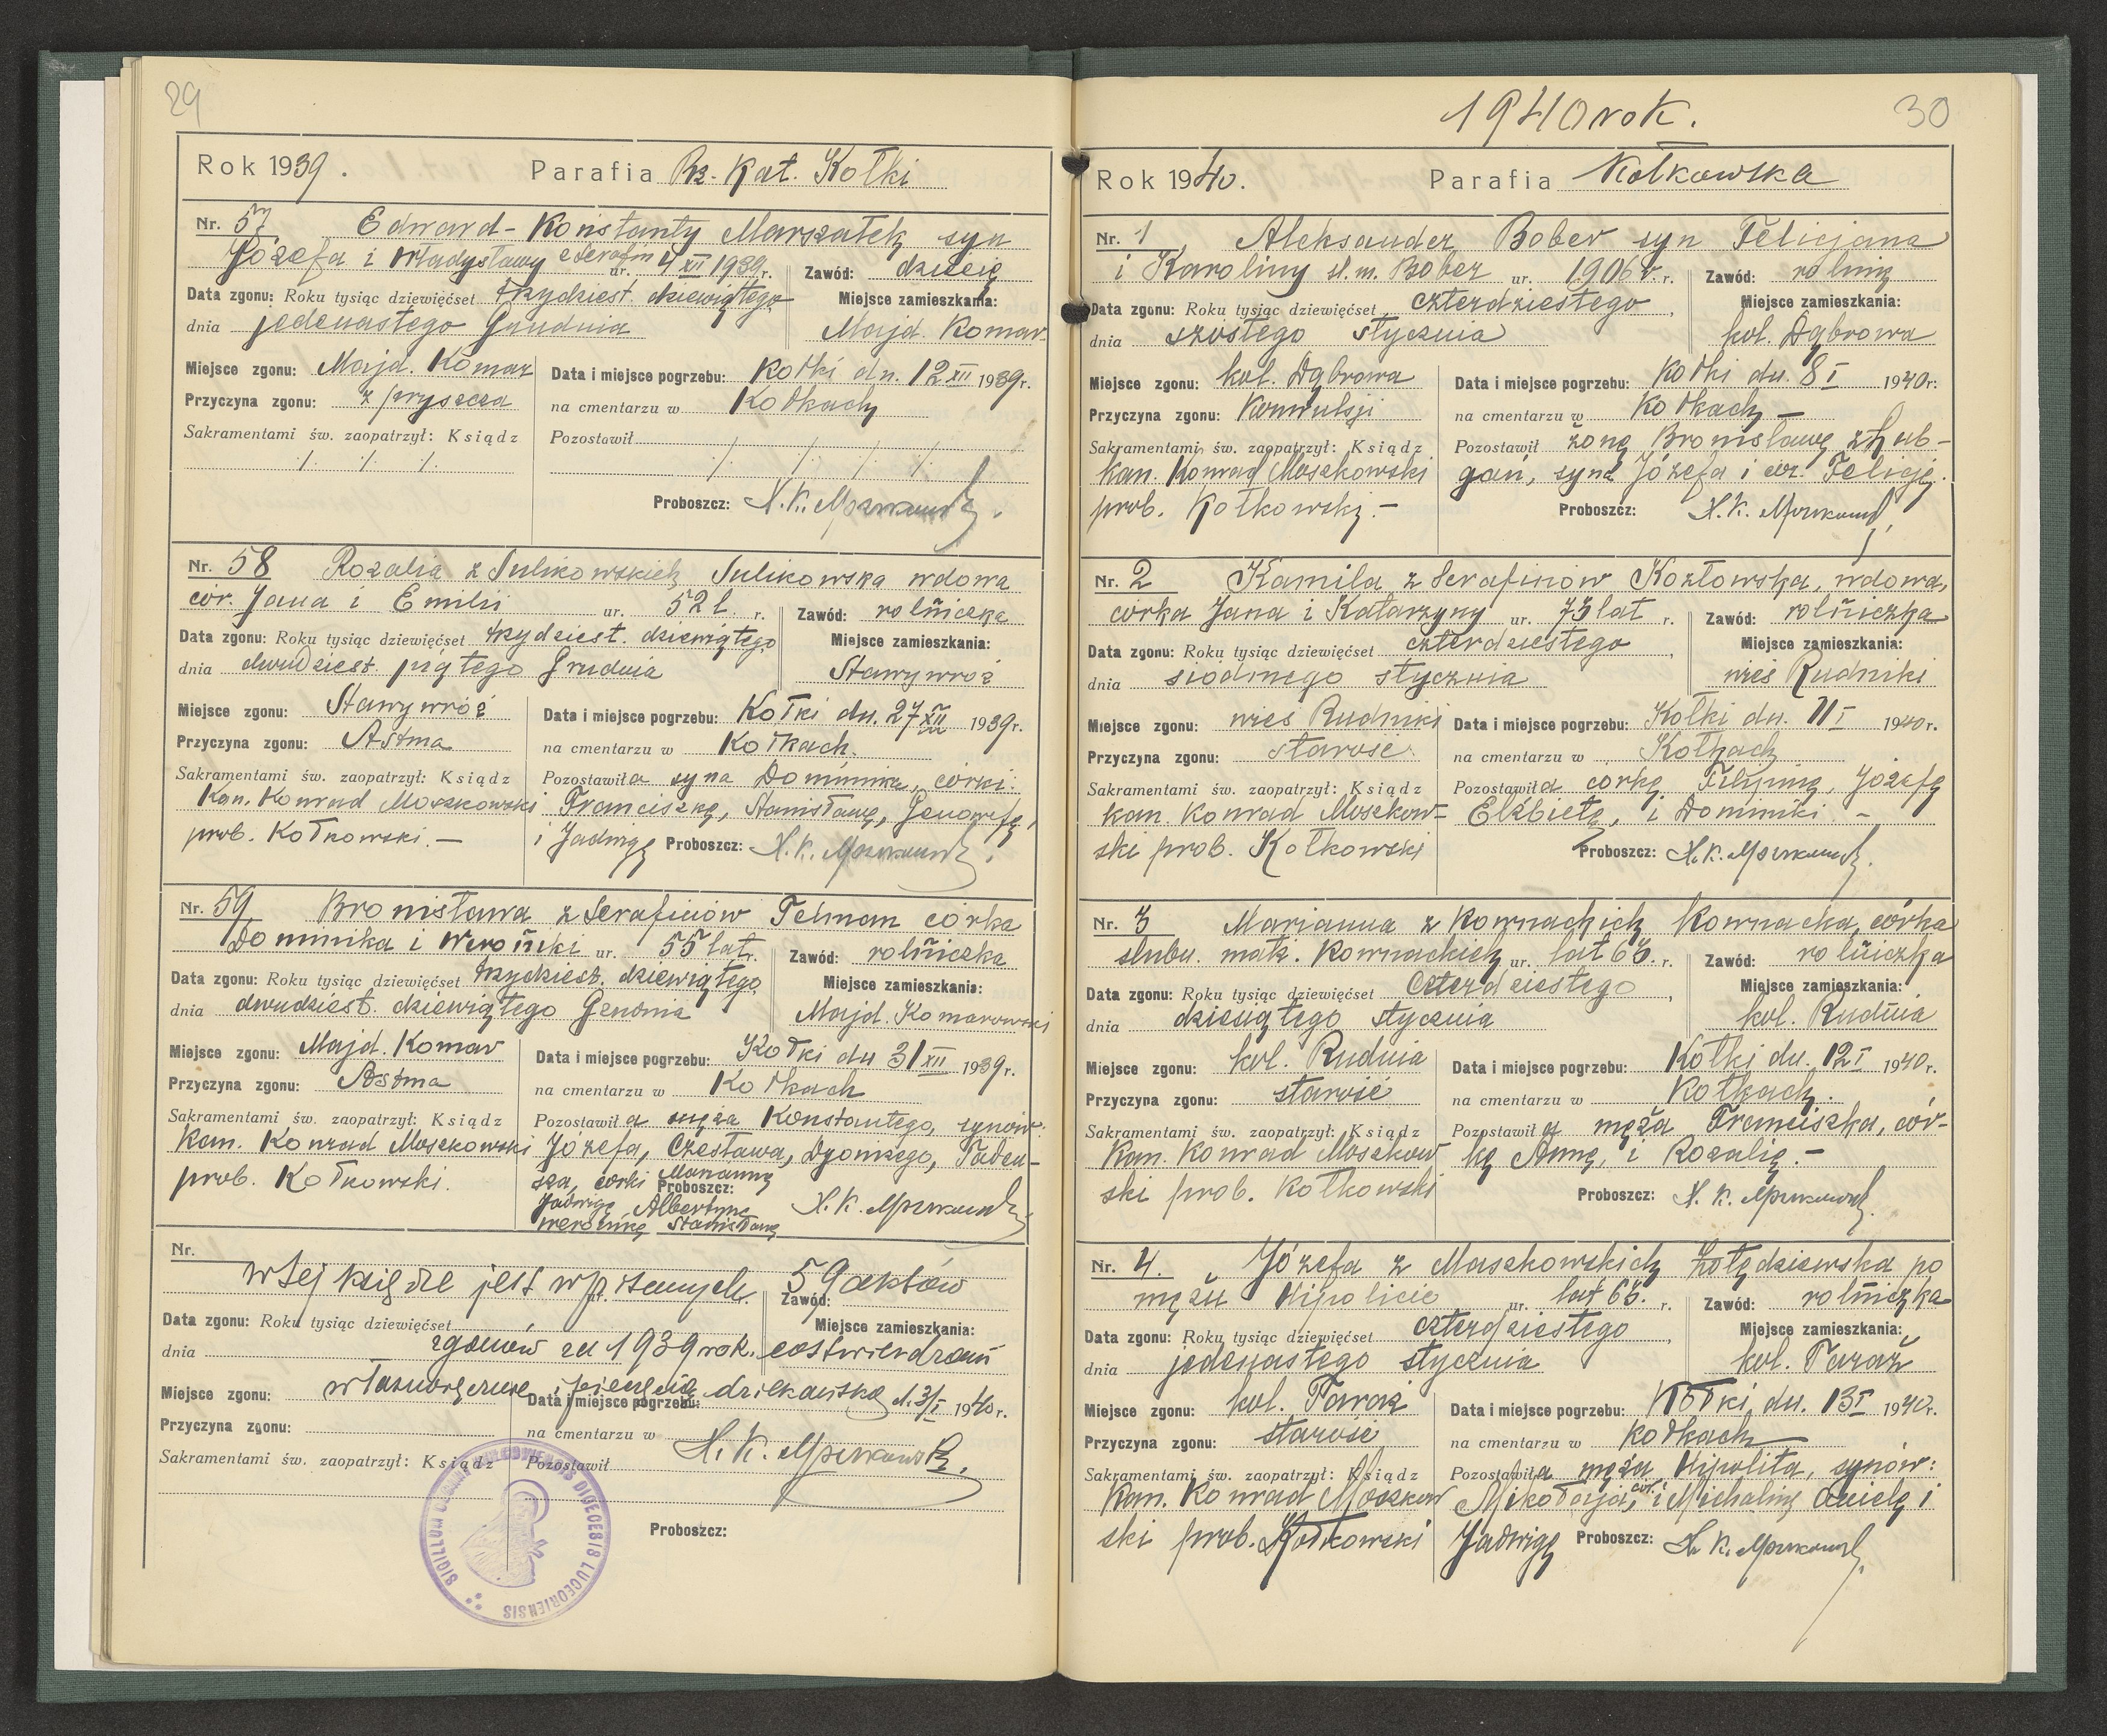 29
Rok 1939. Parafia Rz. Kat. Kołki
Nr. 57 Edward - Konstanty Marszałek syn
Józefa i Władysławy z Serafin ur. 4 XII 1939 r. Zawód: dziecię
Data zgonu: Roku tysiąc dziewięćset trzydziest. dziewiątego Miejsce zamieszkania:
dnia jedenastego Grudnia Majd. Komar.
Miejsce zgonu: Majd. Komar Data i miejsce pogrzebu: Kołki dn. 12 XII 1939 r.
Przyczyna zgonu: z pryszcza na cmentarzu w Kołkach
Sakramentami św. zaopatrzył: Ksiądz Pozostawił
Proboszcz: X. K.
Nr. 58 Rozalia z Sulikowskich Sulikowska wdowa
cór. Jana i Emilii ur. 52 l. r. Zawód: rolniczka
Data zgonu: Roku tysiąc dziewięćset trzydziest. dziewiątego Miejsce zamieszkania:
dnia dwudziest. piątego Grudnia Stawywróż
Miejsce zgonu: Stawywróż Data i miejsce pogrzebu: Kołki dn. 27 XII 1939 r.
Przyczyna zgonu: Astma na cmentarzu w Kołkach.
Sakramentami św. zaopatrzył: Ksiądz Pozostawiła syna Dominika, córki:
Kan. Konrad Moszkowski Franciszkę, Stanisławę, Genowefę,
prob. Kołkowski. — i Jadwigę Proboszcz: X. K.
Nr. 59 Bronisława z Serafinów Felman córka
Dominika i Weroniki ur. 55 lat r. Zawód: rolniczka
Data zgonu: Roku tysiąc dziewięćset trzydziest. dziewiątego Miejsce zamieszkania:
dnia dwudziest. dziewiątego Grudnia Majd. Komarowski
Miejsce zgonu: Majd. Komar Data i miejsce pogrzebu: Kołki dn 31 XII 1939 r.
Przyczyna zgonu: Astma na cmentarzu w Kołkach
Sakramentami św. zaopatrzył: Ksiądz Pozostawiła męża Konstantego, synów:
Kan. Konrad Moszkowski Józefa, Czesława, Dyonizego, Tadeu-
prob. Kołkowski. sza, córki Mariannę
Proboszcz: X. K.
Jadwigę Albertynę
Weronikę Stanisławę
Nr.
W tej księdze jest wpisanych 59 aktów
ur. r. Zawód:
Data zgonu: Roku tysiąc dziewięćset Miejsce zamieszkania:
dnia zgonów za 1939 rok. co stwierdzam
Miejsce zgonu: własnoręcznie i pieczęcią dziekańską d. 3/I 1940 r.
Data i miejsce pogrzebu:
Przyczyna zgonu: na cmentarzu w X. K.
Sakramentami św. zaopatrzył: Ksiądz Pozostawił
Proboszcz:
SIGILLUM DIOECESIS LUCEORIENSIS
1940 rok. 30
Rok 1940. Parafia Kołkowska
Nr. 1 Aleksander Bober syn Felicjana
i Karoliny sl. m. Bober ur. 1906 r. r. Zawód: rolnik
Data zgonu: Roku tysiąc dziewięćset czterdziestego Miejsce zamieszkania:
dnia szóstego stycznia kol. Dąbrowa
Miejsce zgonu: kol. Dąbrowa Data i miejsce pogrzebu: Kołki dn. 8 I 1940 r.
Przyczyna zgonu: Konwulsji na cmentarzu w Kołkach —
Sakramentami św. zaopatrzył: Ksiądz Pozostawił żonę Bronisławę
Kan. Konrad Moszkowski syna Józefa i cór. Felicję.
prob. Kołkowski. — Proboszcz: X. K.
Nr. 2 Kamila z Serafinów Kozłowska, wdowa,
córka Jana i Katarzyny ur. 75 lat r. Zawód: rolniczka
Data zgonu: Roku tysiąc dziewięćset czterdziestego Miejsce zamieszkania:
dnia siódmego stycznia wieś Rudniki
Miejsce zgonu: wieś Rudniki Data i miejsce pogrzebu: Kołki dn. 11 I 1940 r.
Przyczyna zgonu: starość na cmentarzu w Kołkach
Sakramentami św. zaopatrzył: Ksiądz Pozostawiła córkę Filipinę, Józefę
kan. Konrad Moszkow- Elżbietę, i Dominiki —
ski prob. Kołkowski Proboszcz: X. K.
Nr. 3 Marianna z Kownackich Kownacka, córka
ślubn. małż. Kownackich ur. lat 65. r. Zawód: rolniczka
Data zgonu: Roku tysiąc dziewięćset czterdziestego Miejsce zamieszkania:
dnia dziesiątego stycznia kol. Rudnia
Miejsce zgonu: kol. Rudnia Data i miejsce pogrzebu: Kołki dn. 12 I 1940 r.
Przyczyna zgonu: starość na cmentarzu w Kołkach.
Sakramentami św. zaopatrzył: Ksiądz Pozostawiła męża Franciszka, cór-
Kan. Konrad Moszkow kę Annę, i Rozalię. —
ski prob. Kołkowski Proboszcz: X. K.
Nr. 4. Józefa z Maszkowskich Żołędziewska po
mężu Hipolicie ur. lat 65. r. Zawód: rolniczka
Data zgonu: Roku tysiąc dziewięćset czterdziestego Miejsce zamieszkania:
dnia jedenastego stycznia kol. Taraż
Miejsce zgonu: kol. Taraż Data i miejsce pogrzebu: Kołki, dn. 13 I 1940 r.
Przyczyna zgonu: starość na cmentarzu w Kołkach
Sakramentami św. zaopatrzył: Ksiądz Pozostawiła męża Hipolita, synów:
Kan. Konrad Moszkow Mikołaja, cór. i Michalinę i
ski prob. Kołkowski Jadwigę Proboszcz: X. K.